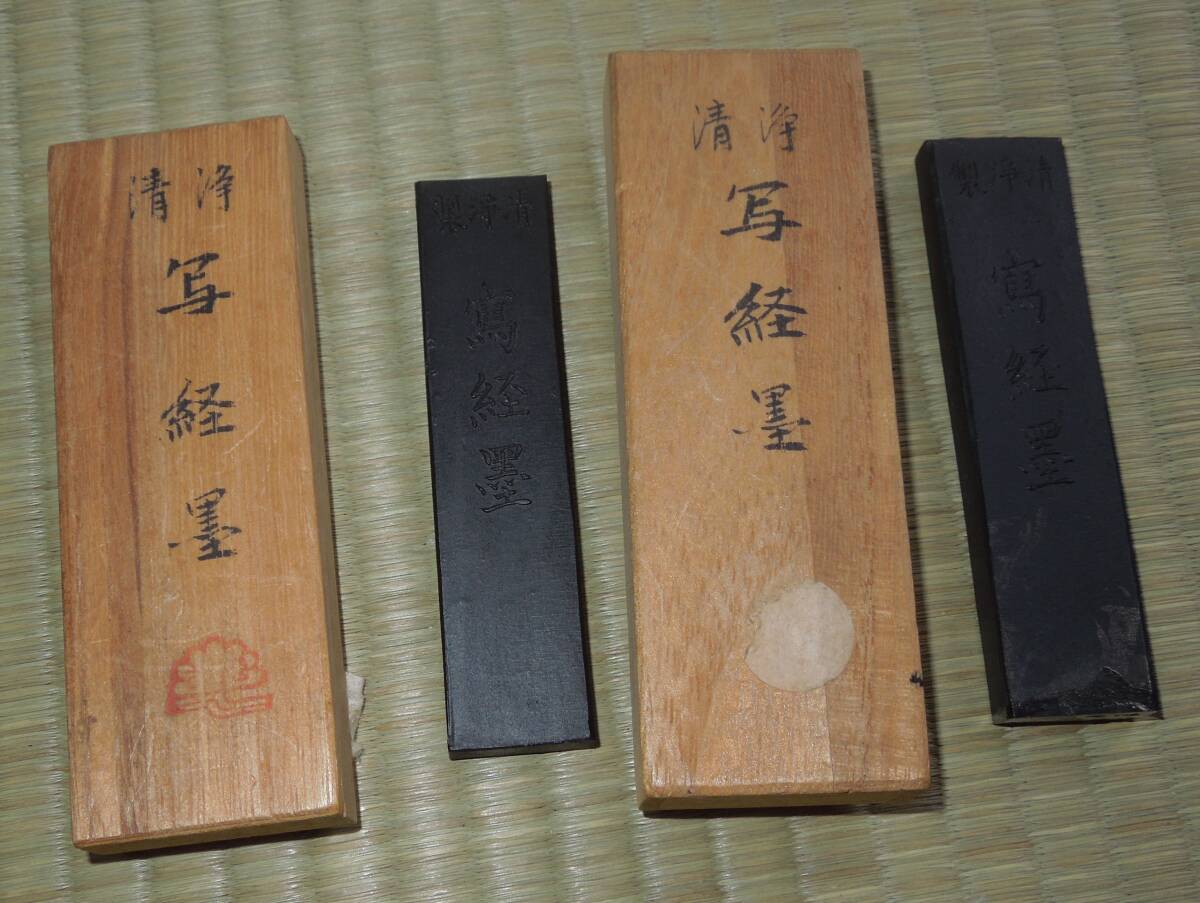 清浄
写経墨
清浄製
寫経墨
清浄
写経墨
清浄製
寫経墨